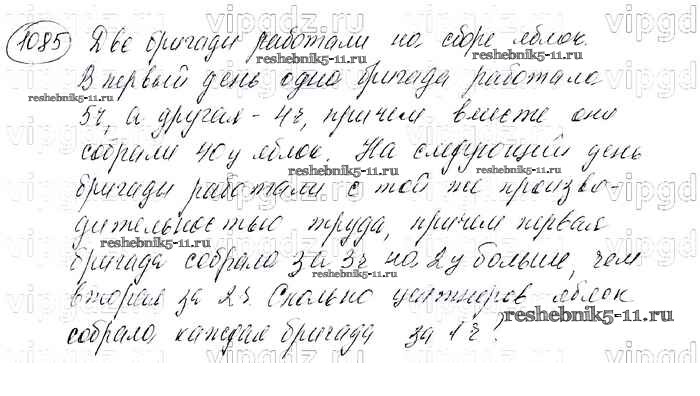 1085 Две бригады работали на сборе яблок.
В первый день одна бригада работала
5ч, а другая - 4ч, причем вместе они
собрали 40ц яблок. На следующий день
бригады работали с той же произво-
дительностью труда, причем первая
бригада собрала за 3ч на 2ц больше, чем
вторая за 2ч. Сколько центнеров яблок
собрала каждая бригада за 1ч?
reshebnik5-11.ru
reshebnik5-11.ru
reshebnik5-11.ru
reshebnik5-11.ru
reshebnik5-11.ru
reshebnik5-11.ru
reshebnik5-11.ru